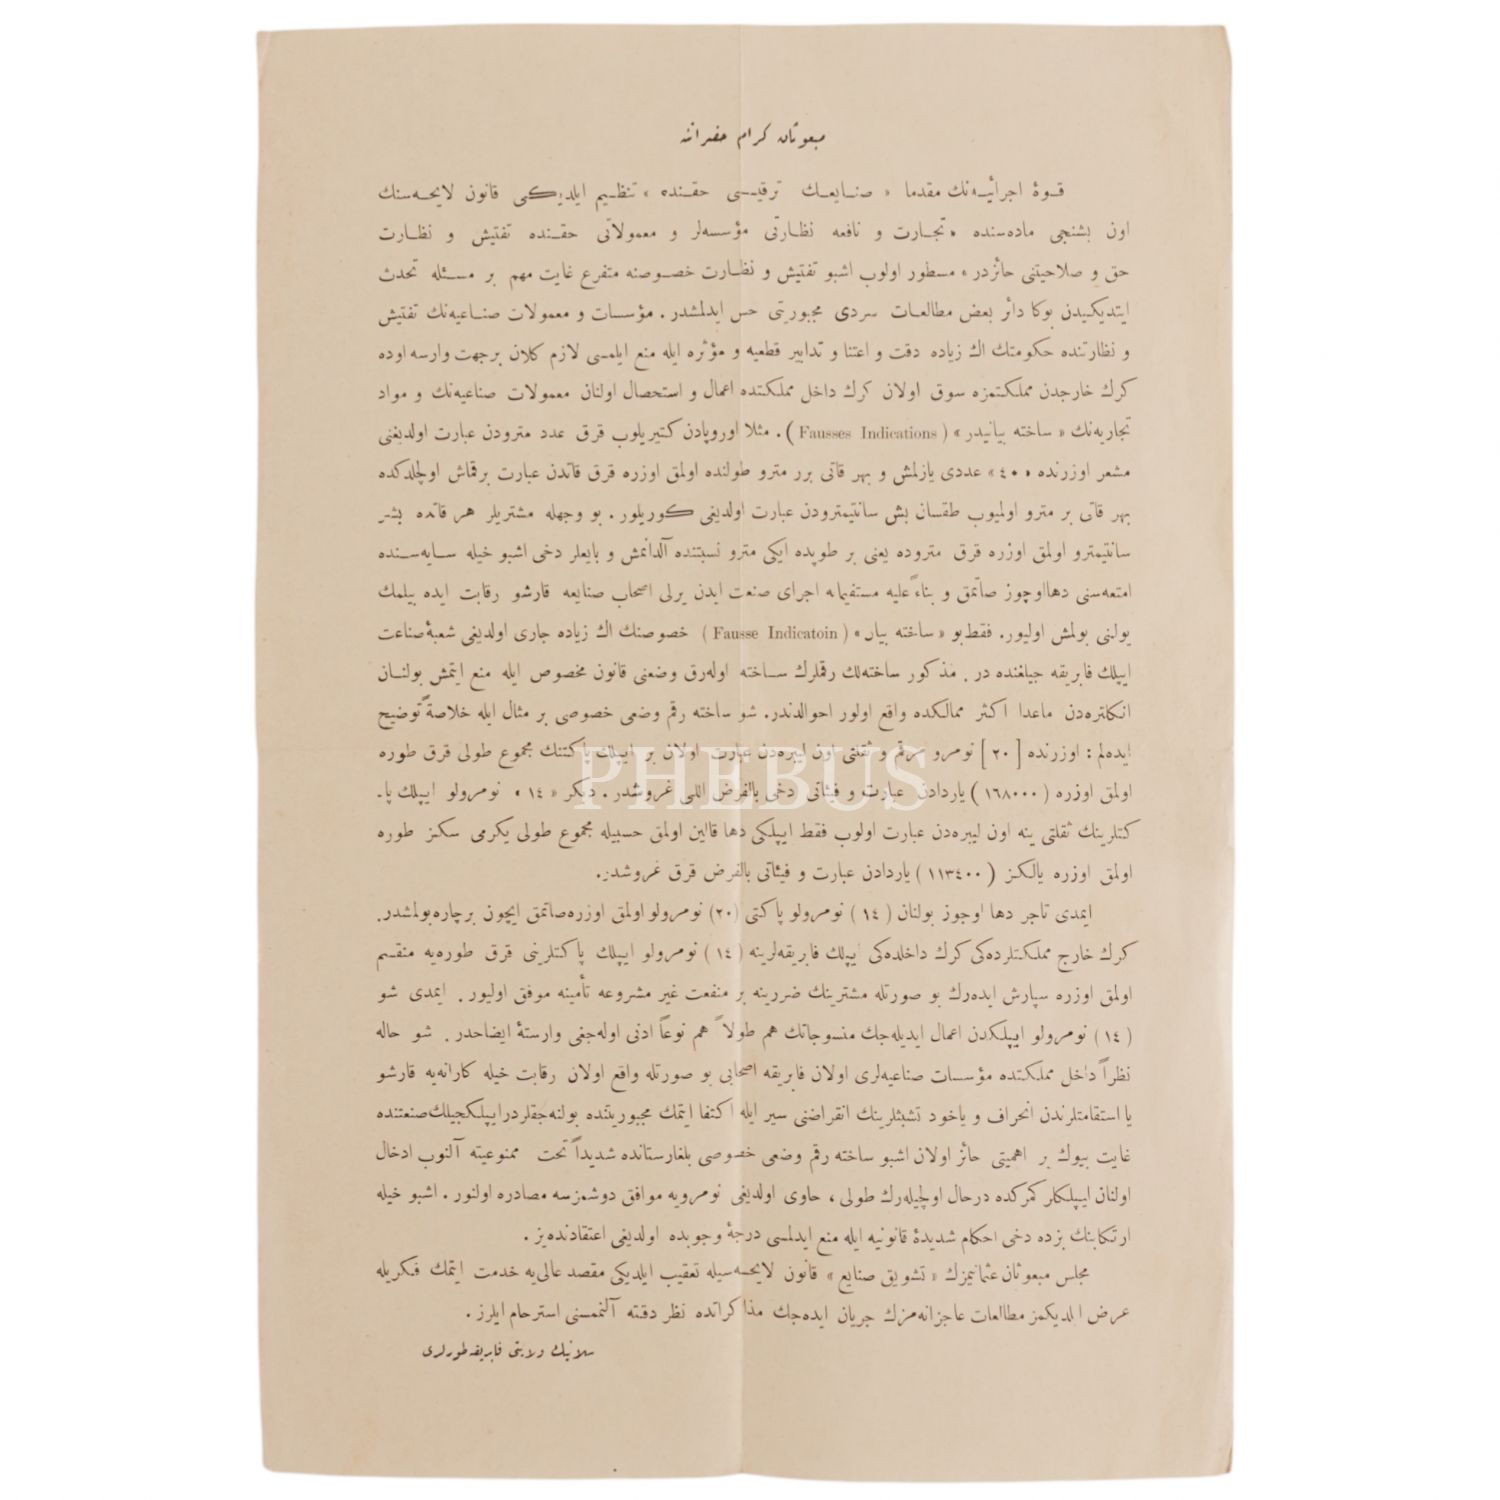 مبعوثان كرام حضراتنه
قـوهٔ اجرائيـه‌نك مقدما « صنـايعـك ترقيـسى حقـنده » تنظـيم ايلديـكى قانون لايحـه‌سنك
اون بشنجى ماده‌سنده « تجـارت و نافعه نظـارتى مؤسسه‌لر و معمولاتى حقـنده تفتيش و نظـارت
حق و صلاحيتنى حائزدر » مسطور اولوب اشبو تفتيش و نظـارت خصـوصنه متفرع غايت مهم بر مسـئله تحدث
ايتديكـيدن بوكا دائر بعض مطالعـات سردى مجبوريتى حس ايدلمشدر . مؤسسات و معمولات صنـاعيه‌نك تفتيش
و نظارتنده حكومتك اك زياده دقت و اعتنا و تدابير قطعيه و مؤثره ايله منع ايلمسى لازم كلان برجهت وارسه اوده
كرك خارجدن مملكتمزه سوق اولان كرك داخل مملكتده اعمال و استحصال اولنان معمولات صناعيه‌نك و مواد
تجاريه‌نك « ساخته بيانيدر » ( Fausses Indications ) . مثلا اوروپادن كتيريلوب قرق عدد مترودن عبارت اولديغنى
مشعر اوزرنده « ٤٠ » عددى يازلمش و بهر قاتى برر مترو طولنده اولمق اوزره قرق قاتدن عبارت برقماش اولچلدكده
بهر قاتى بر مترو اولميوب طقسان بش سانتيمترودن عبارت اولديغى كـوريلور . بو وجهله مشتريلر هر قاتده بشر
سانتيمترو اولمق اوزره قرق متروده يعنى بر طوپده ايكى مترو نسبتنده آلدانمش و بايعلر دخى اشبو حيله سـايه‌سـنده
امتعه‌سنى دهااوجوز صاتمق و بناءً عليه مستقيمانه اجراى صنعت ايدن يرلى اصحاب صنايعه قارشو رقابت ايده بيلمك
يولنى بولمش اوليور. فقط‌بو « ساخته بيان » ( Fausse Indicatoin ) خصوصنك اك زياده جارى اولديغى شعبهٔ صناعت
ايپلك فابريقه جيلغنده در . مذكور ساخته‌لك رقملرك سـاخته اوله‌رق وضعنى قانون مخصوص ايله منع ايتمش بولنـان
انكلتره‌دن ماعدا اكثر ممالكده واقع اولور احوالدندر. شو ساخته رقم وضعى خصوصى بر مثال ايله خلاصةً توضيح
ايده‌لم : اوزرنده [ ٢٠ ] نومرو مرقم و ثقلتى اون ليبره‌دن عبارت اولان بر ايپلك پاكتنك مجموع طولى قرق طوره
اولمق اوزره ( ١٦٨٠٠٠ ) ياردادن عبارت و فيئاتى دخى بالفرض اللى غروشدر . ديكر « ١٤ » نومرولو ايپلك پا-
كتلرينك ثقلتى ينه اون ليبره‌دن عبارت اولوب فقط ايپلكى دها قالين اولمق حسبيله مجموع طولى يكرمى سكـز طوره
اولمق اوزره يالـكـز ( ١١٣٤٠٠ ) ياردادن عبارت و فيئاتى بالفرض قرق غروشدر.
ايمدى تاجر دها اوجوز بولنان ( ١٤ ) نومرولو پاكتى (٢٠) نومرولو اولمق اوزره‌صاتمق ايچون برچاره‌بولمشدر.
كرك خارج مملكتلرده‌كى كرك داخلده‌كى ايپلك فابريقه‌لرينه ( ١٤ ) نومرولو ايپلك پاكتلرينى قرق طوره‌يه منقسم
اولمق اوزره سپارش ايده‌رك بو صورتله مشترينك ضررينه بر منفعت غير مشروعه تأمينه موفق اوليور . ايمدى شو
( ١٤ ) نومرولو ايپلكدن اعمال ايديله‌جك منسوجاتك هم طولاً هم نوعاً ادنى اوله‌جغى وارستهٔ ايضاحدر . شو حاله
نظراً داخل مملكتده مؤسسات صناعيه‌لرى اولان فابريقه اصحابى بو صورتله واقع اولان رقابت حيله كارانه‌يه قارشو
يا استقامتلرندن انحراف و ياخود تشبثلرينك انقراضنى سير ايله اكتفا ايتمك مجبوريتنده بولنه‌جقلردر.ايپلكجيلك‌صنعتنده
غايت بيوك بر اهميتى حائز اولان اشبو ساخته رقم وضعى خصوصى بلغارستانده شديداً تحت ممنوعيته آلنوب ادخال
اولنان ايپلكلر كمركده درحال اولچيله‌رك طولى ، حاوى اولديغى نومرويه موافق دوشمزسه مصادره اولنور . اشبو حيله
ارتكابنك بزده دخى احكام شديدهٔ قانونيه ايله منع ايدلمسى درجهٔ وجوبده اولديغى اعتقادنده‌يز .
مجلس مبعوثان عثمانيمزك « تشويق صنايع » قانون لايحـه‌سيله تعقيب ايلديكى مقصد عالى‌يه خدمت ايتمك فـكريله
عرض ايلديكمز مطالعات عاجزانه‌مزك جريان ايده‌جك مذاكراتده نظر دقته آلنمسنى استرحام ايلرز .
سلانيك ولايتى فابريقه‌طورلرى
PHEBUS